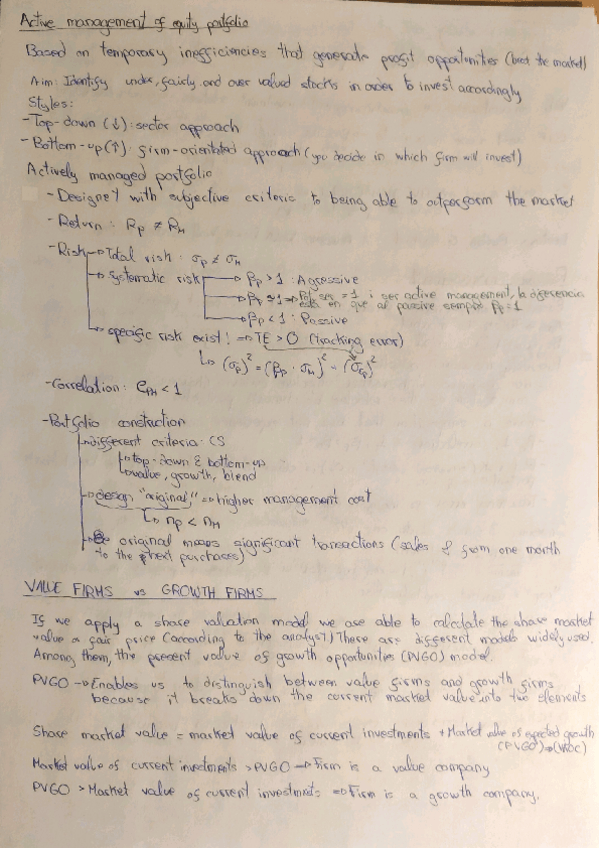 Active management of equity portfolio
Based on temporary inefficiencies that generate profit opportunities (beat the market)
Aim: Identify under, fairly and over valued stocks in order to invest accordingly
Styles:
-Top-down (↓): sector approach
-Bottom-up (↑): firm-orientated approach (you decide in which firm will invest)
Actively managed portfolio
-Designe? with subjective criteria to being able to outperform the market
-Return: Rp ≠ RM
-Risk → Total risk: σp ≠ σM
→ Systematic risk → βp > 1: Agressive
→ βp ≈ 1 → Pot ser = 1 i ser active management, la diferencia
està en que al passive sempre βp = 1
→ βp < 1: Passive
→ specific risk exist! ⇒ TE > 0 (tracking error)
↳ (σp)² = (βp · σM)² - (σεp)²
-Correlation: ρPM < 1
-Portfolio construction
→ different criteria: CS
→ top-down & bottom-up
→ value, growth, blend
→ design "original" ⇒ higher management cost
↳ np < nM
→ original means significant transactions (sales & from one month
to the next purchases)
VALUE FIRMS vs GROWTH FIRMS
If we apply a share valuation model we are able to calculate the share market
value a fair price (according to the analyst) There are different models widely used.
Among them, the present value of growth opportunities (PVGO) model.
PVGO → Enables us to distinguish between value firms and growth firms
because it breaks down the current market value into two elements
Share market value = market value of current investments + Market value of expected growth
(PVGO) → (VAOC)
Market value of current investments > PVGO → Firm is a value company
PVGO > Market value of current investments ⇒ Firm is a growth company.